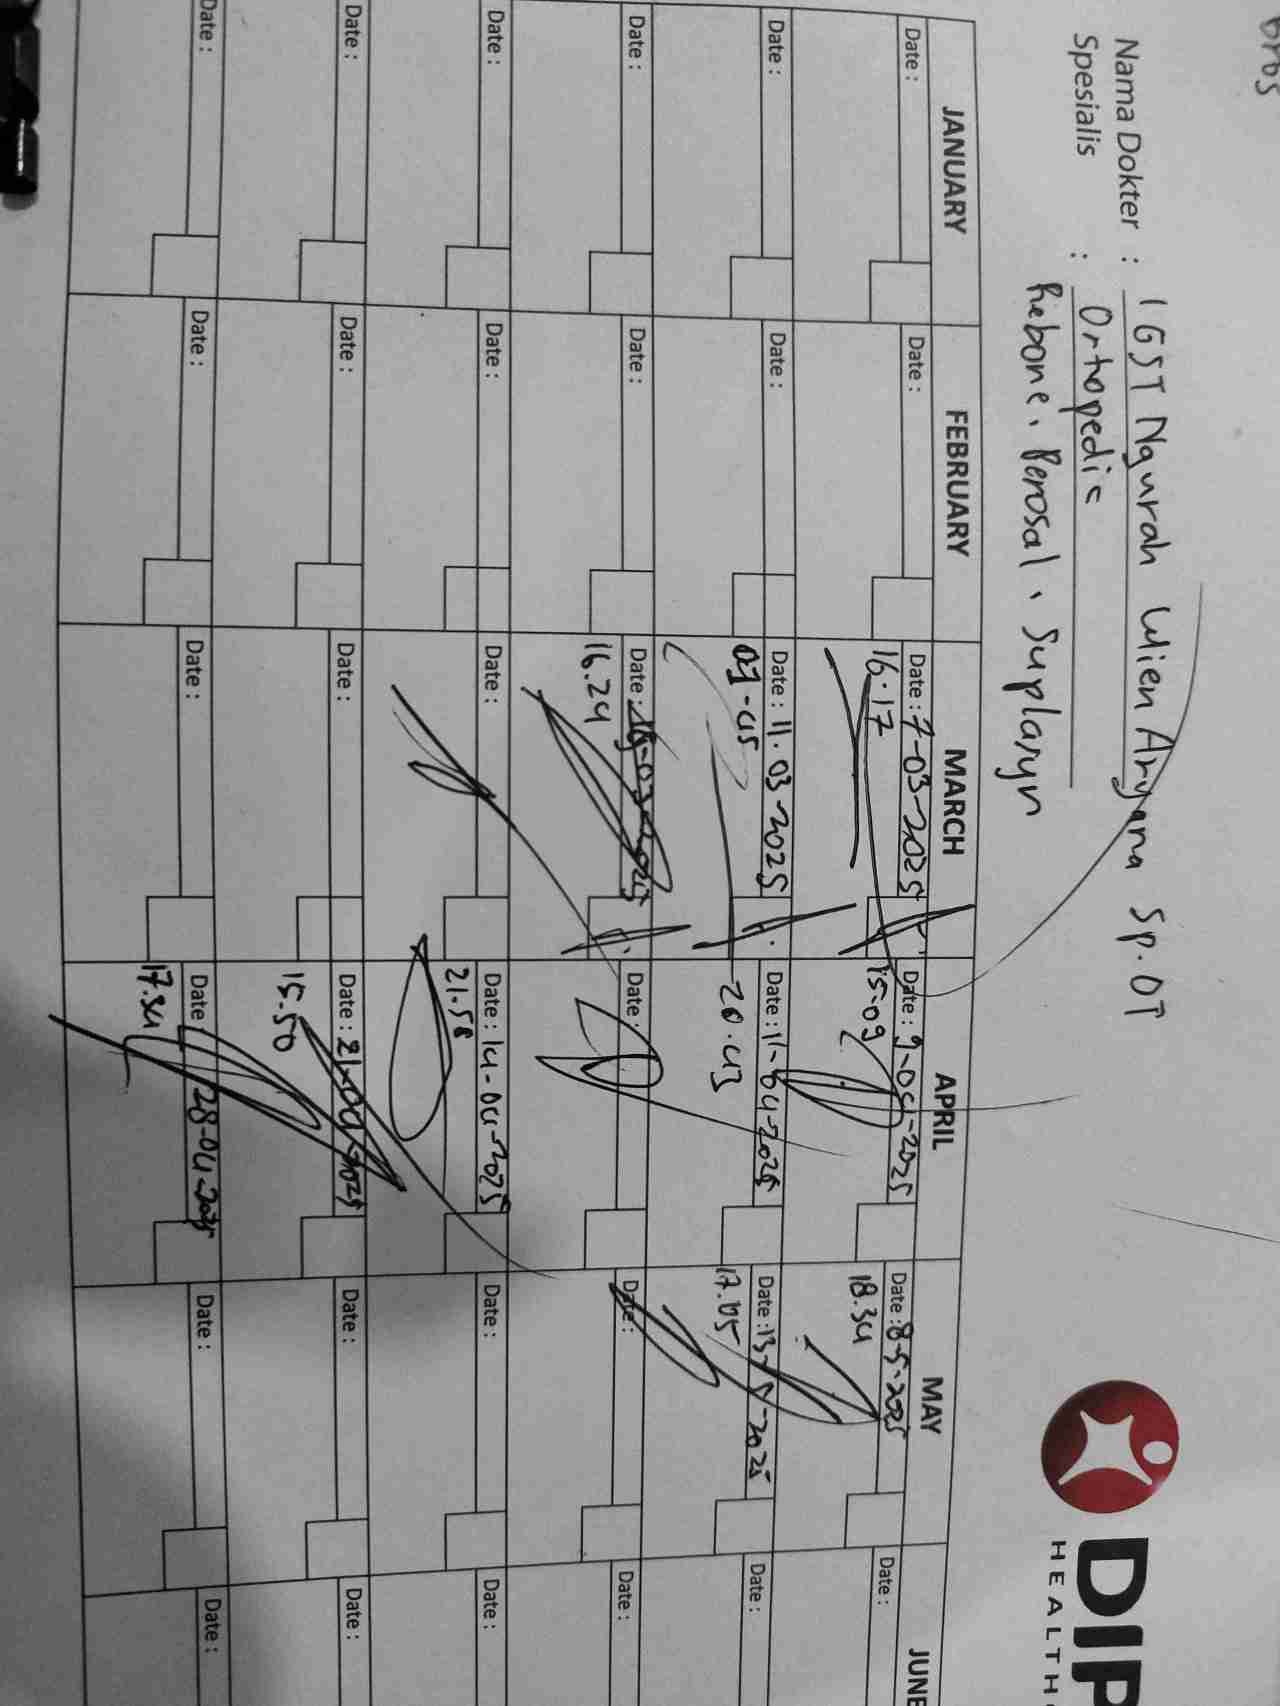 Nama Dokter : I GST Ngurah Wien Aryana Sp.OT
Spesialis : Orthopedic
Rebone, Perosal, Suplaryn
DIP
HEALTH
JANUARY FEBRUARY MARCH APRIL MAY JUNE
Date : Date : Date : 7-03-2025 Date : 9-04-2025 Date : 8-5-2025 Date :
16.17 15-09 18.34
Date : Date : Date : 11.03-2025 Date : 11-04-2025 Date : 13-5-2025 Date :
20.43 17.05
Date : Date : Date : Date : Date : Date :
16.24
Date : Date : Date : Date : 14-04-2025 Date : Date :
21.58
Date : Date : Date : Date : 21-04-2025 Date : Date :
15.50
Date : Date : Date : Date 28-04-2025 Date : Date :
17.34